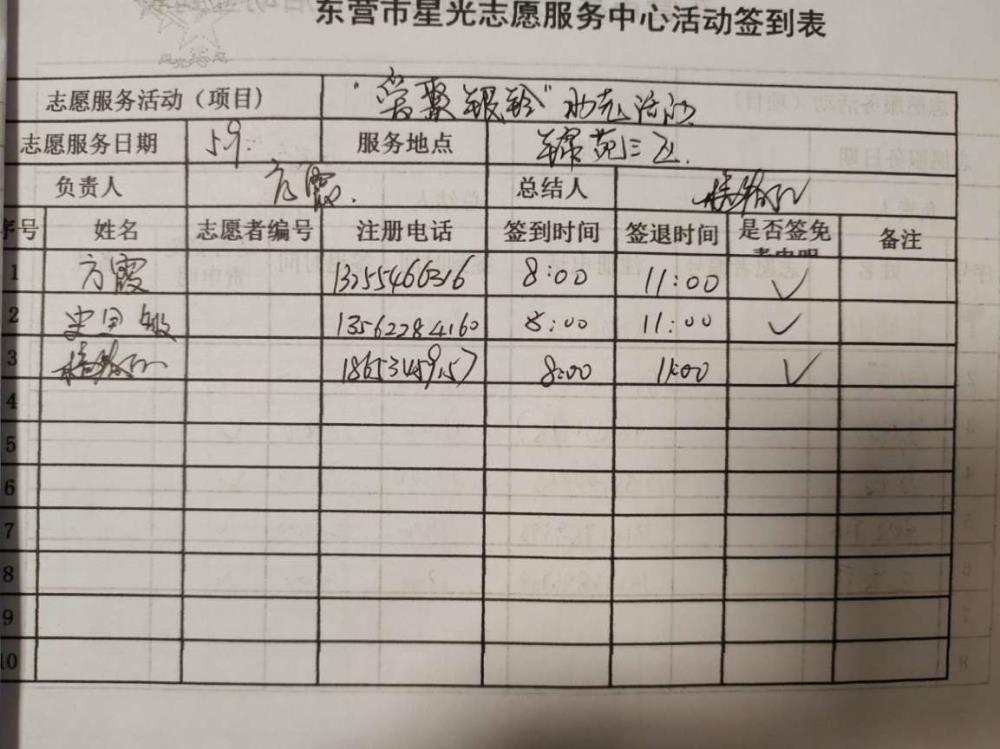 东营市星光志愿服务中心活动签到表
志愿服务活动（项目） "爱聚银龄"助老活动
志愿服务日期 5.9. 服务地点 锦苑三区.
负责人 方霞. 总结人
序号 姓名 志愿者编号 注册电话 签到时间 签退时间 是否签免 备注
1 方霞 13255466316 8:00 11:00 ✓
2 史国敏 13562284160 8:00 11:00 ✓
3 8:00 11:00 ✓
4
5
6
7
8
9
10